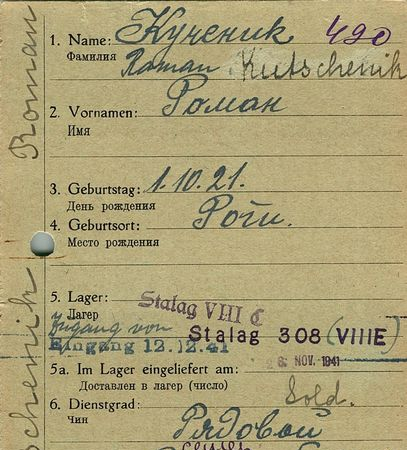 1. Name: Кученик 490
Фамилия Roman Kutschenik
2. Vornamen: Роман
Имя
3. Geburtstag: 1.10.21.
День рождения
4. Geburtsort:
Место рождения
5. Lager: Stalag VIII C
Лагер
Zugang von Stalag 308 (VIIIE)
Eingang 12.12.41
NOV. 1941
5a. Im Lager eingeliefert am:
Доставлен в лагер (число)
Sold.
6. Dienstgrad:
Чин Рядовой
Roman